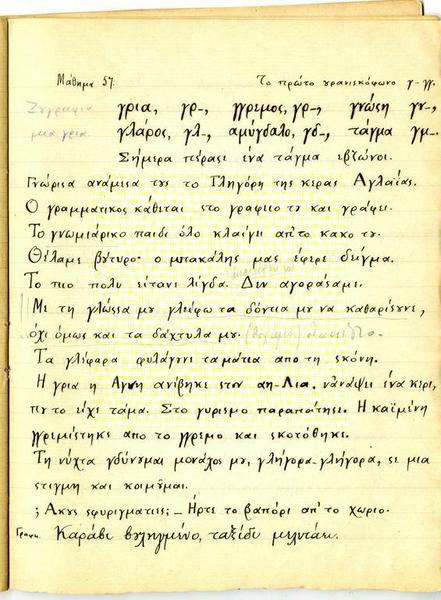 Μάθημα 57. Το πρώτο γ-γγ.
γρια, γρ-, γγρεμος, γρ-, γνώση γν-,
μια γρια. γλάρος, γλ-, αμύγδαλο, γδ-, τάγμα γμ-.
Σήμερα πέρασε ένα τάγμα εβζώνοι.
Γνώρισα ανάμεσα τυς το Γληγόρη της κερας Αγλαΐας.
Ο γραμματικος κάθεται στο γραφειο τυ και γράφει.
Το γνωμιάρικο παιδι όλο κλαίγει απ'το κακο τυ.
Θέλαμε βύτυρο· ο μπακάλης μας έφερε δείγμα.
Το πιο πολυ είτανε λίγδα. Δεν αγοράσαμε.
Με τη γλώσσα μυ γλείφω τα δόντια μυ να καθαρίσυνε,
όχι όμως και τα δάχτυλα μυ.
Τα γλέφαρα φυλάγυνε τα μάτια απο τη σκόνη.
Η γρια η Αγνη ανίβηκε στον αη-Λια, ν'ανάψει ένα κερι,
πυ το είχε τάμα. Στο γυρισμο παραπάτησε. Η καϊμένη
γγρεμίστηκε απο το γγρεμο και σκοτώθηκε.
Τη νύχτα γδύνυμαι μονάχος μυ, γλήγορα-γλήγορα, σε μια
στιγμη και κοιμυμαι.
; Ακυς σφυριγματιες; — Ήρτε το βαπόρι απ'το χωριο.
Γραφη. Καράβι βυληγμένο, ταξίδυ μελυτάνε.